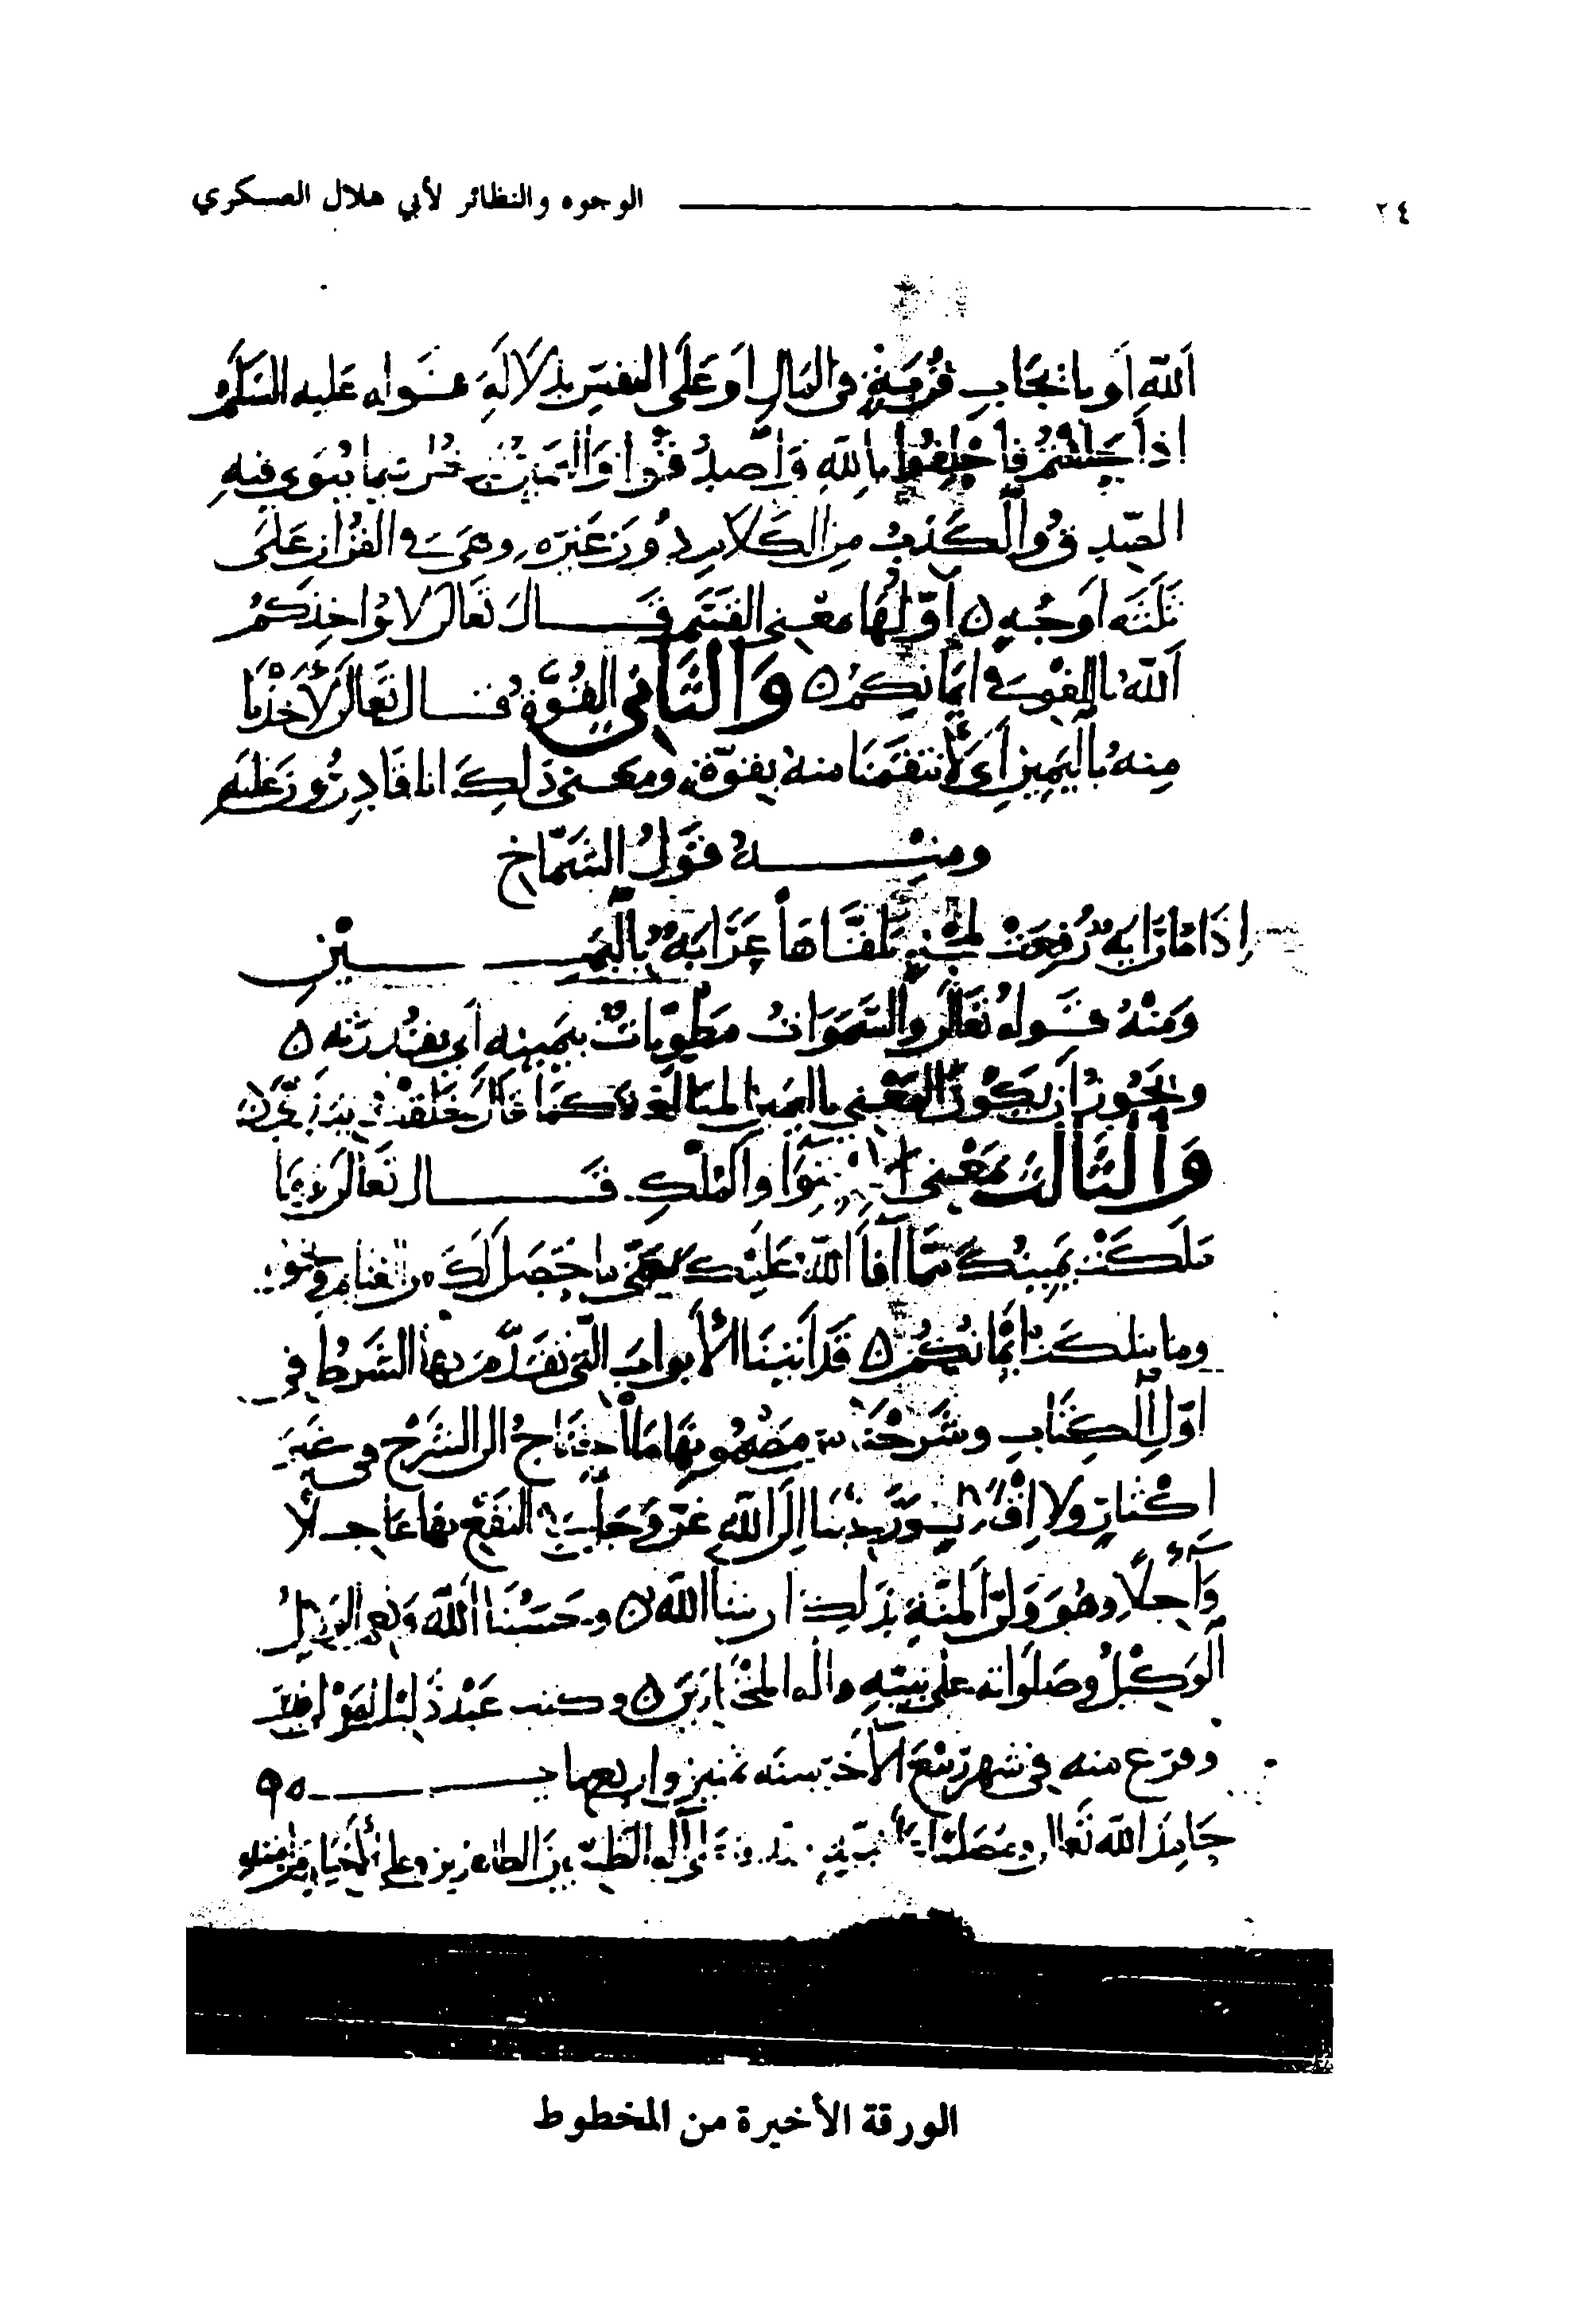 ٢٤ الوجوه والنظائر لأبي هلال العسكري
الله او بايجاب قربة في المال او على النفس بدلالة قوله عليه السلم
اذا حلفتم فاحلفوا بالله واصدقوا واليمين بما ينوى فيه
الصدق والكذب من الكلام دون غيره وهي في القران على
ثلثه اوجه ٥ اولها بمعنى القسم قال تعالى لا يؤاخذكم
الله باللغو في ايمانكم ٥ والثاني القوة قال تعالى لأخذنا
منه باليمين اي لأنتقمنا منه بقوة ومعنى ذلك انا قادرون عليه
ومنه قول الشماخ
إذا ما راية رفعت لمجد تلقاها عرابة باليمين
ومنه قوله تعالى والسموات مطويات بيمينه اي بقدرته ٥
ويجوز ان يكون المعنى باليمين المبالغة كما قال خلقت بيدي ٥
والثالث بمعنى والملك قال تعالى
ملكت يمينك مما افا الله عليك يعني ما حصل لك من الغنايم ونحو
وما ملكت ايمانكم ٥ قد اتينا الأبواب التي تقدم بها الشرط في
اول الكتاب وشرحنا من مضمونها ما احتاج الى الشرح في غير
اكثار ولا الى الله عز وجل النفع بها عاجلا
وآجلا وهو ولي المنة بذلك الله ٥ وحسبنا الله ونعم
الوكيل وصلواته على نبيه واله المختارين ٥ وكتب
وفرغ منه في شهر ربيع الآخر سنه ثمنين واربعمايه
حامدا لله تعالى الطيبين الطاهرين وعلى
الورقة الأخيرة من المخطوط